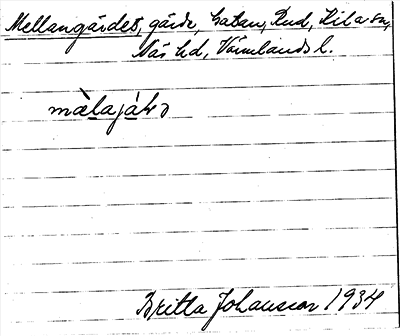 Mellangärdet, gärde, Gatan, Rud, Kila sn,
Näs hd, Värmlands l.
màlajálˈə
Britta Johansson 1934